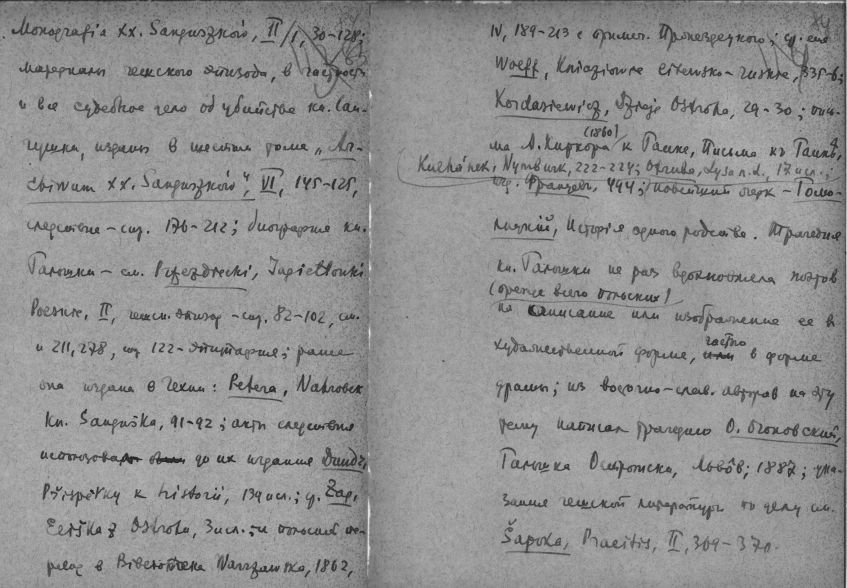 Monografia XX. Sanguszków, II/1, 30-128;
материалы чешского эпизода, в частности
и все судебное дело об убийстве кн. Сан-
гушки, изданы в шестом томе „Ar-
chiwum XX. Sanguszków", VI, 145-125,
следствие - стр. 176-212; биография кн.
Гальшки - см. Przezdziecki, Jagiellonki
Polskie, II, чешск. эпизод - стр. 82-102, см.
и 211, 278, стр 122 - эпитафия; ранее
она издана в Чехии: Petera, Nahrobek
Kn. Sanguška, 91-92; акты следствия
до их издания
Příspěvky k historii, 139 и сл.; ср. Zap,
Eliška z Ostroha, 3 и сл.; и польский пе-
ревод в Biblioteka Warszawska, 1862,
IV, 189-213 с примеч. Пржездецкого; ср. еще
Wolff, Kniaziowie litewsko-ruscy, 335-6;
Kardasiewicz, Dzieje Ostroha, 29-30; пись-
(1860)
ма А. Киркора к Ганке, Письма къ Ганкѣ,
Kuchónek, Nymburk, 222-224; Otruba, Lysa n. L., 17 и сл.;
Францев, 444; новейший очерк - Голо-
Исторія одного родства. Трагедия
кн. Гальшки не раз вдохновляла поэтов
(прежде всего польских)
на описание или изображение ее в
художественной форме, часто в форме
драмы; из восточно-слав. авторов на эту
тему написал трагедию О. Огоновский,
Гальшка Острожска, Львôв, 1887; ука-
зания чешской литературы по делу см.
Šapoka, Praeitis, II, 369-370.